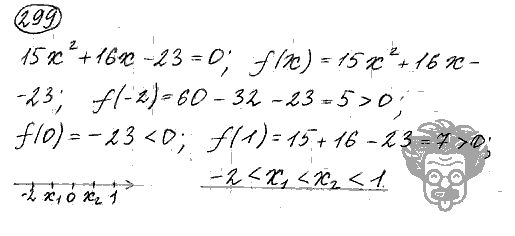 299
15x² + 16x - 23 = 0; f(x) = 15x² + 16x -
- 23; f(-2) = 60 - 32 - 23 = 5 > 0;
f(0) = - 23 < 0; f(1) = 15 + 16 - 23 = 7 > 0;
-2 < x₁ < x₂ < 1.
-2 x₁ 0 x₂ 1